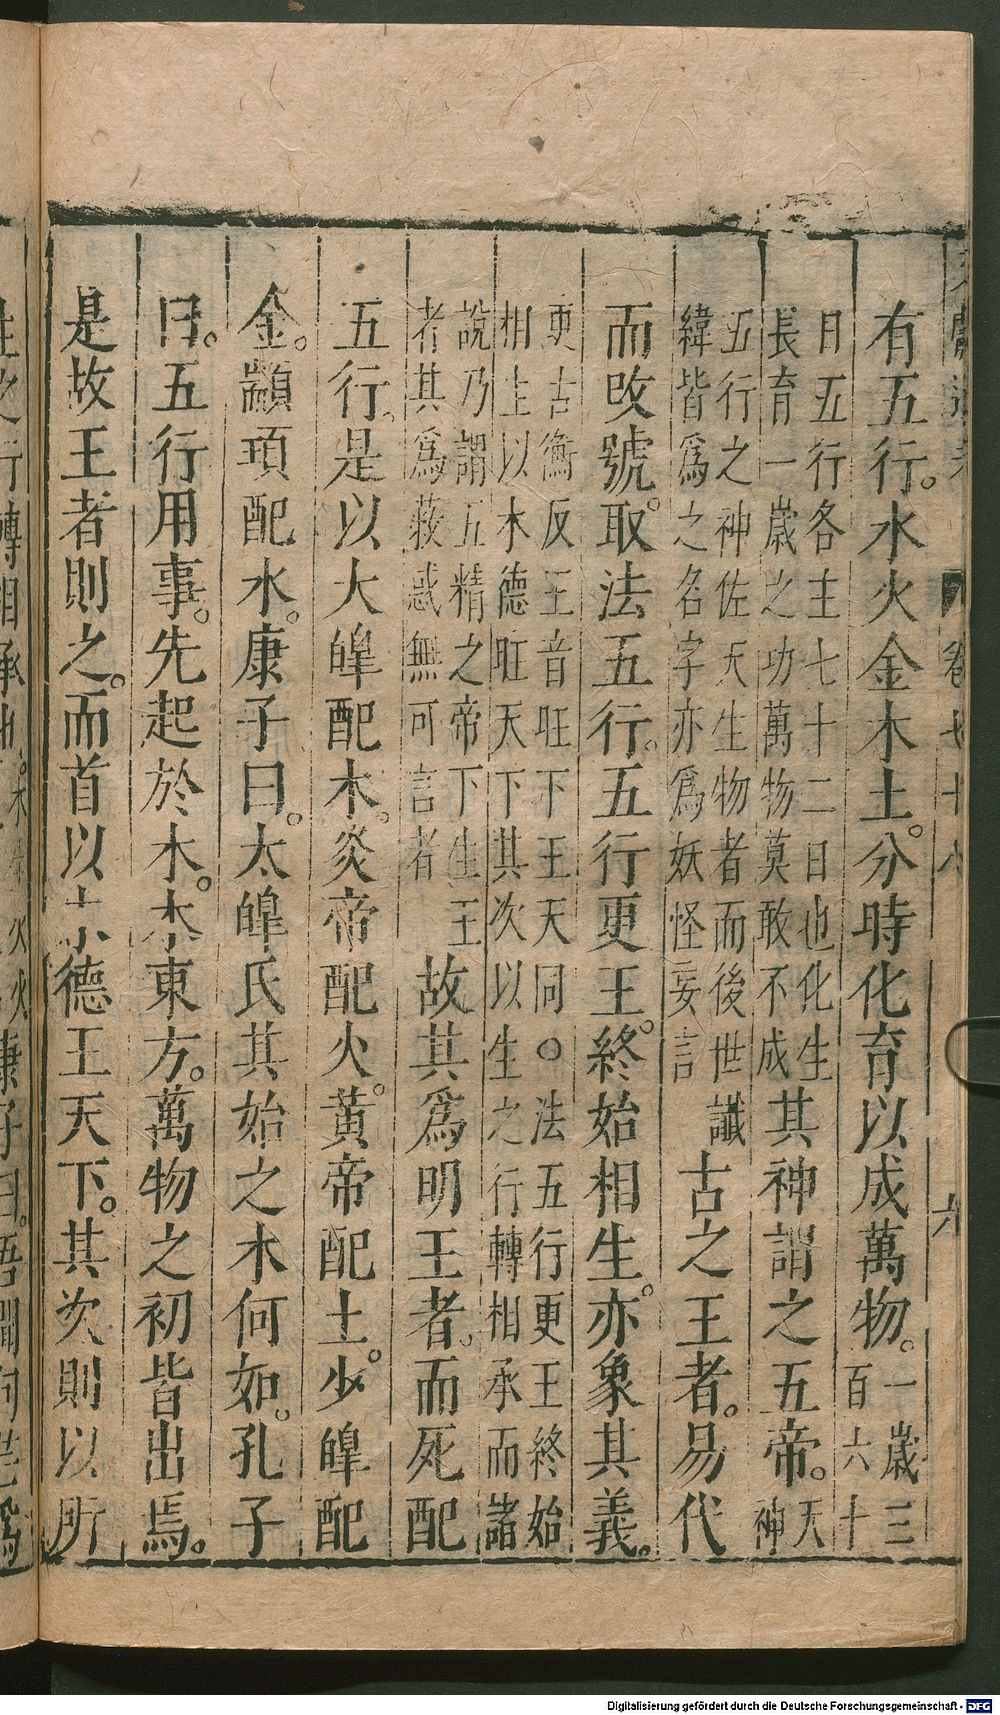 有五行。水火金木土。分時化育以成萬物。一歲三百六十
日五行各主七十二日也化生長育一歲之功萬物莫敢不成其神謂之五帝。天神
五行之神佐天生物者而後世讖緯皆爲之名字亦爲妖怪妄言古之王者。易代
而改號。取法五行。五行更王。終始相生。亦象其義。
更古衡反王音旺下王天下同○法五行更王終始相生以木德旺天下其次以生之行轉相承而諸
說乃謂五精之帝下生王者其爲蔽惑無可言者故其爲明王者。而死配
五行。是以大皥配木。炎帝配火。黃帝配土。少皥配
金。顓頊配水。康子曰。太皥氏其始之木何如。孔子
曰。五行用事。先起於木。木東方。萬物之初皆出焉。
是故王者則之。而首以木德王天下。其次則以所
卷七十八
六
Digitalisierung gefördert durch die Deutsche Forschungsgemeinschaft - DFG